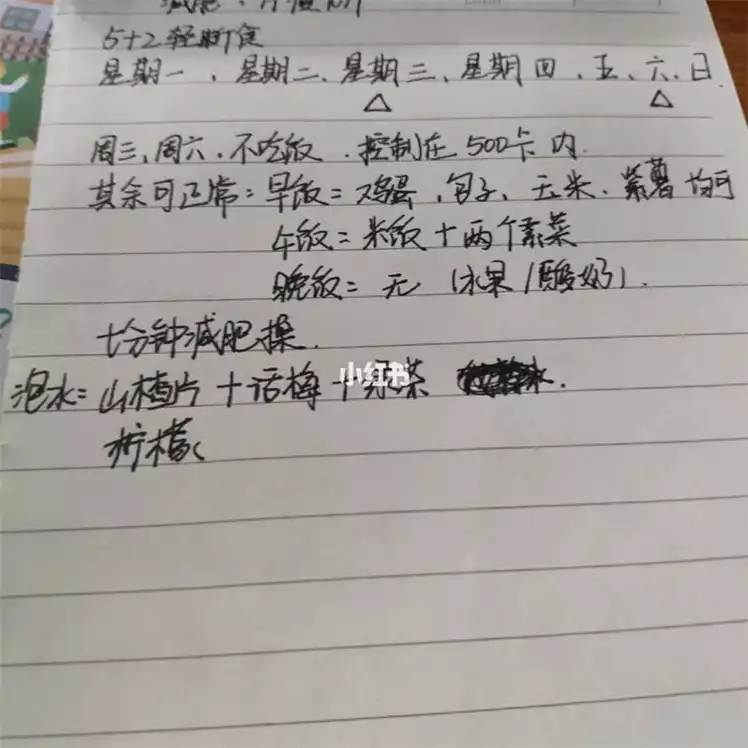 减肥:月瘦10斤
5+2轻断食
星期一、星期二、星期三、星期四、五、六、日.
△ △
周三、周六、不吃饭、控制在500卡内.
其余可正常:早饭=鸡蛋、包子、玉米、紫薯均可
午饭=米饭+两个素菜
晚饭=无(水果/酸奶).
十分钟减肥操.
泡水=山楂片+话梅+绿茶
柠檬
小红书